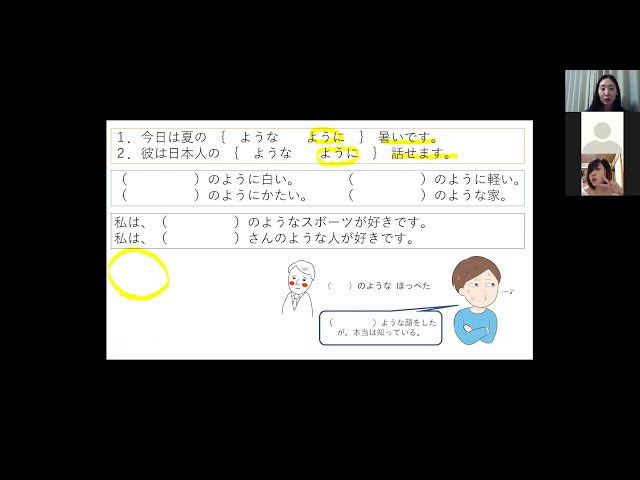 1．今日は夏の ｛ ような ように ｝ 暑いです。
2．彼は日本人の ｛ ような ように ｝ 話せます。
（ ）のように白い。 （ ）のように軽い。
（ ）のようにかたい。 （ ）のような家。
私は、（ ）のようなスポーツが好きです。
私は、（ ）さんのような人が好きです。
（ ）のような ほっぺた
（ ）ような顔をした
が、本当は知っている。